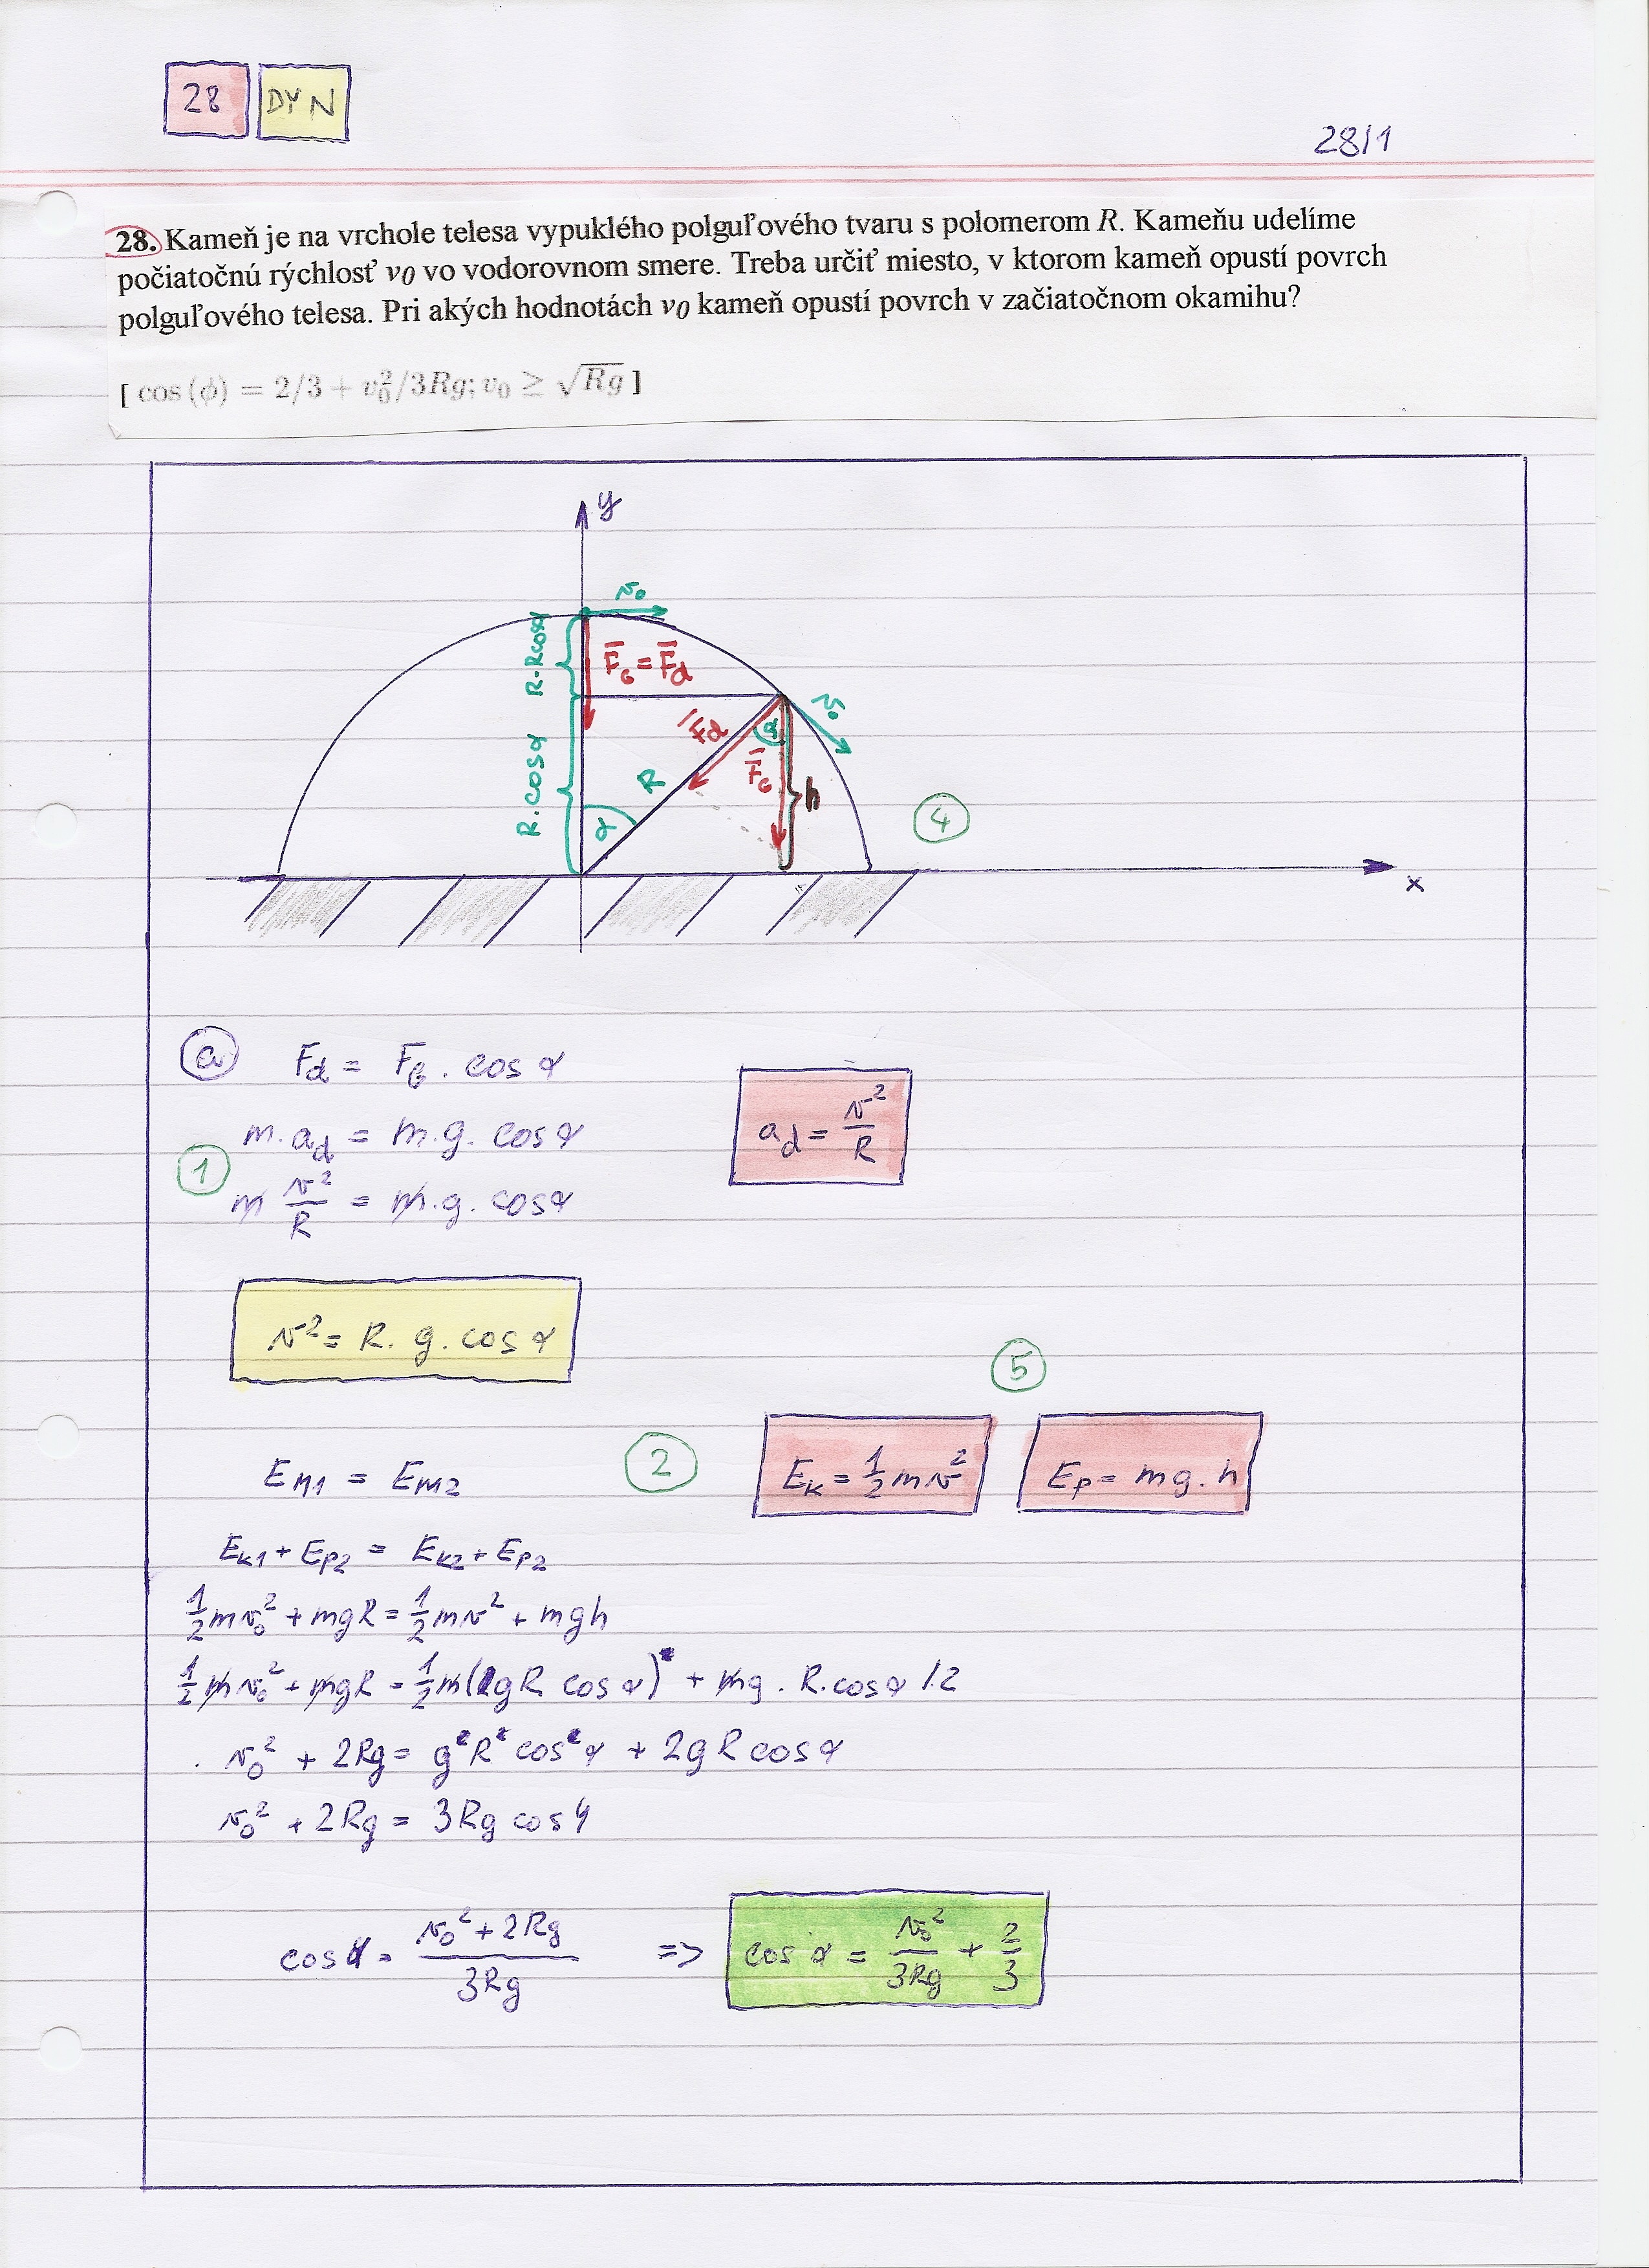 28 DYN
28/1
28. Kameň je na vrchole telesa vypuklého polguľového tvaru s polomerom R. Kameňu udelíme
počiatočnú rýchlosť v0 vo vodorovnom smere. Treba určiť miesto, v ktorom kameň opustí povrch
polguľového telesa. Pri akých hodnotách v0 kameň opustí povrch v začiatočnom okamihu?
[ cos (ϕ) = 2/3 + v₀²/3Rg; v₀ ≥ √Rg ]
y
v₀
R-Rcosα
F̄G = F̄d
v₀
F̄d
α
F̄G
R
h
R.cosα
α
4
x
a Fd = FG . cos α
m. ad = m.g. cos α
ad = v²/R
1
m v²/R = m.g. cosα
v² = R. g. cos α
5
EM1 = EM2
2
Ek = 1/2 mv²
Ep = mg.h
Ek1 + Ep2 = Ek2 + Ep2
1/2 mv₀² + mgR = 1/2 mv² + mgh
1/2 mv₀² + mgR = 1/2 m(gR cos α) + mg . R.cosα /.2
v₀² + 2Rg = g²R²cos²α + 2gRcosα
v₀² + 2Rg = 3Rg cosφ
cosα = (v₀² + 2Rg)/3Rg => cos α = v₀²/3Rg + 2/3